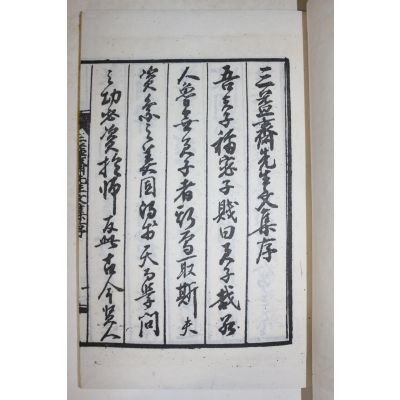 三益齋先生文集序
吾夫子稱宓子賤曰君子哉若
人魯無君子者斯焉取斯夫
資稟之美固得於天而學問
之功必資於師友此古今賢人
三益齋先生文集序